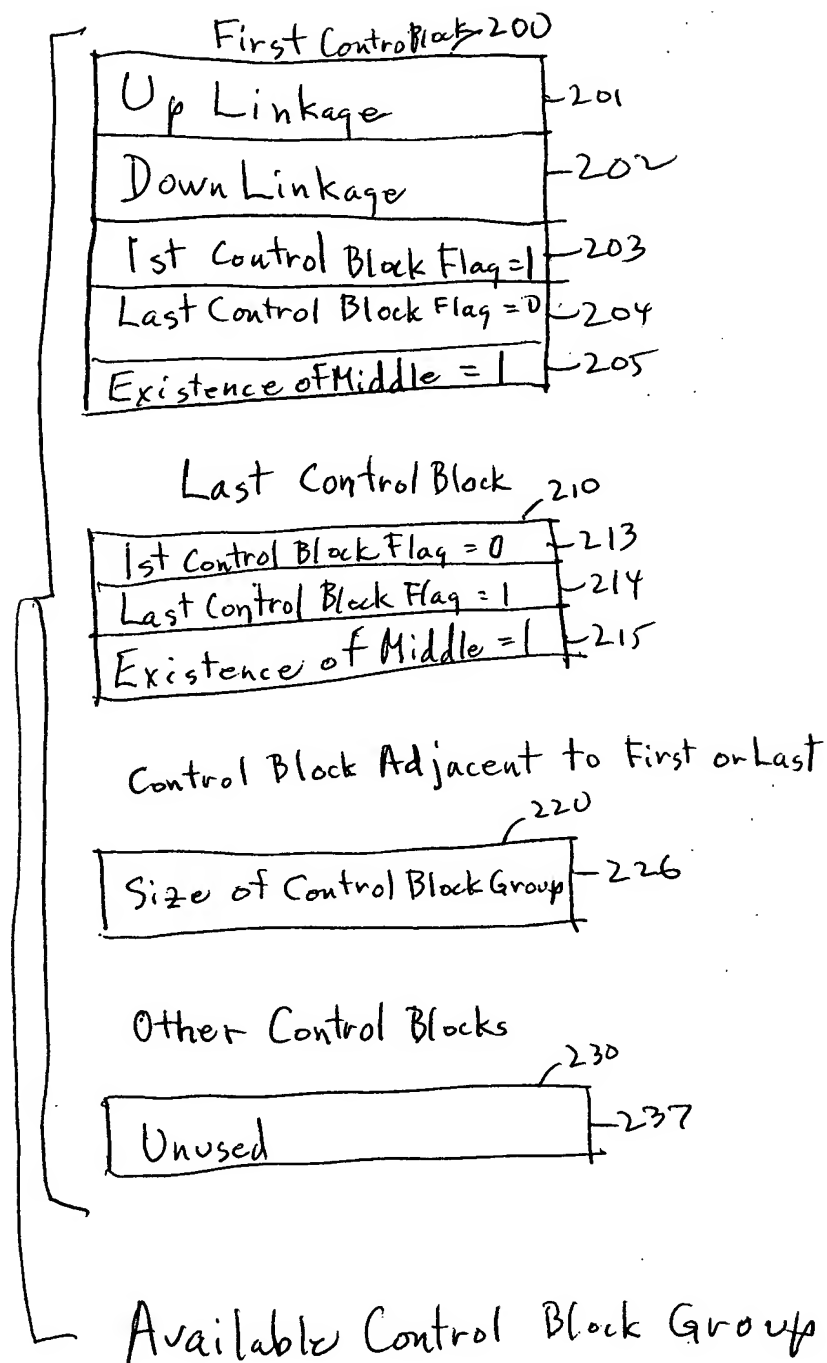 First Control Block 200
Up Linkage 201
Down Linkage 202
1st Control Block Flag=1 203
Last Control Block Flag=0 204
Existence of Middle = 1 205
Last Control Block 210
1st Control Block Flag = 0 213
Last Control Block Flag = 1 214
Existence of Middle = 1 215
Control Block Adjacent to First or Last
220
Size of Control Block Group 226
Other Control Blocks
230
Unused 237
Available Control Block Group